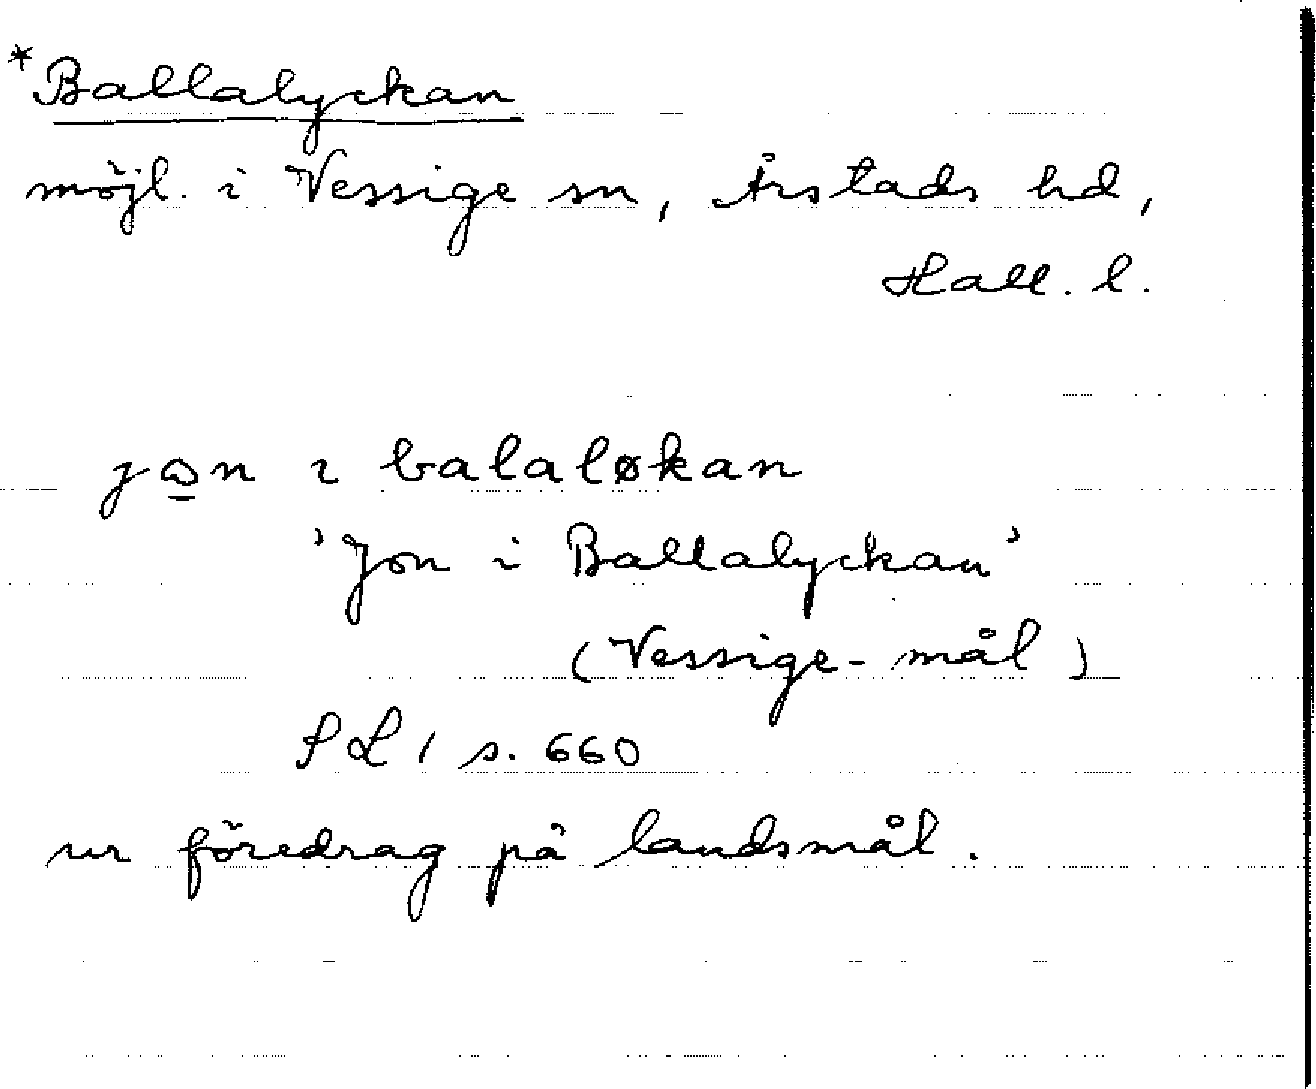 *Ballalyckan
möjl. i Vessige sn, Årstads hd,
Hall. l.
jɷ̲n ɩ balaløkan
'Jon i Ballalyckan'
(Vessige-mål)
SL 1 s. 660
ur föredrag på landsmål.